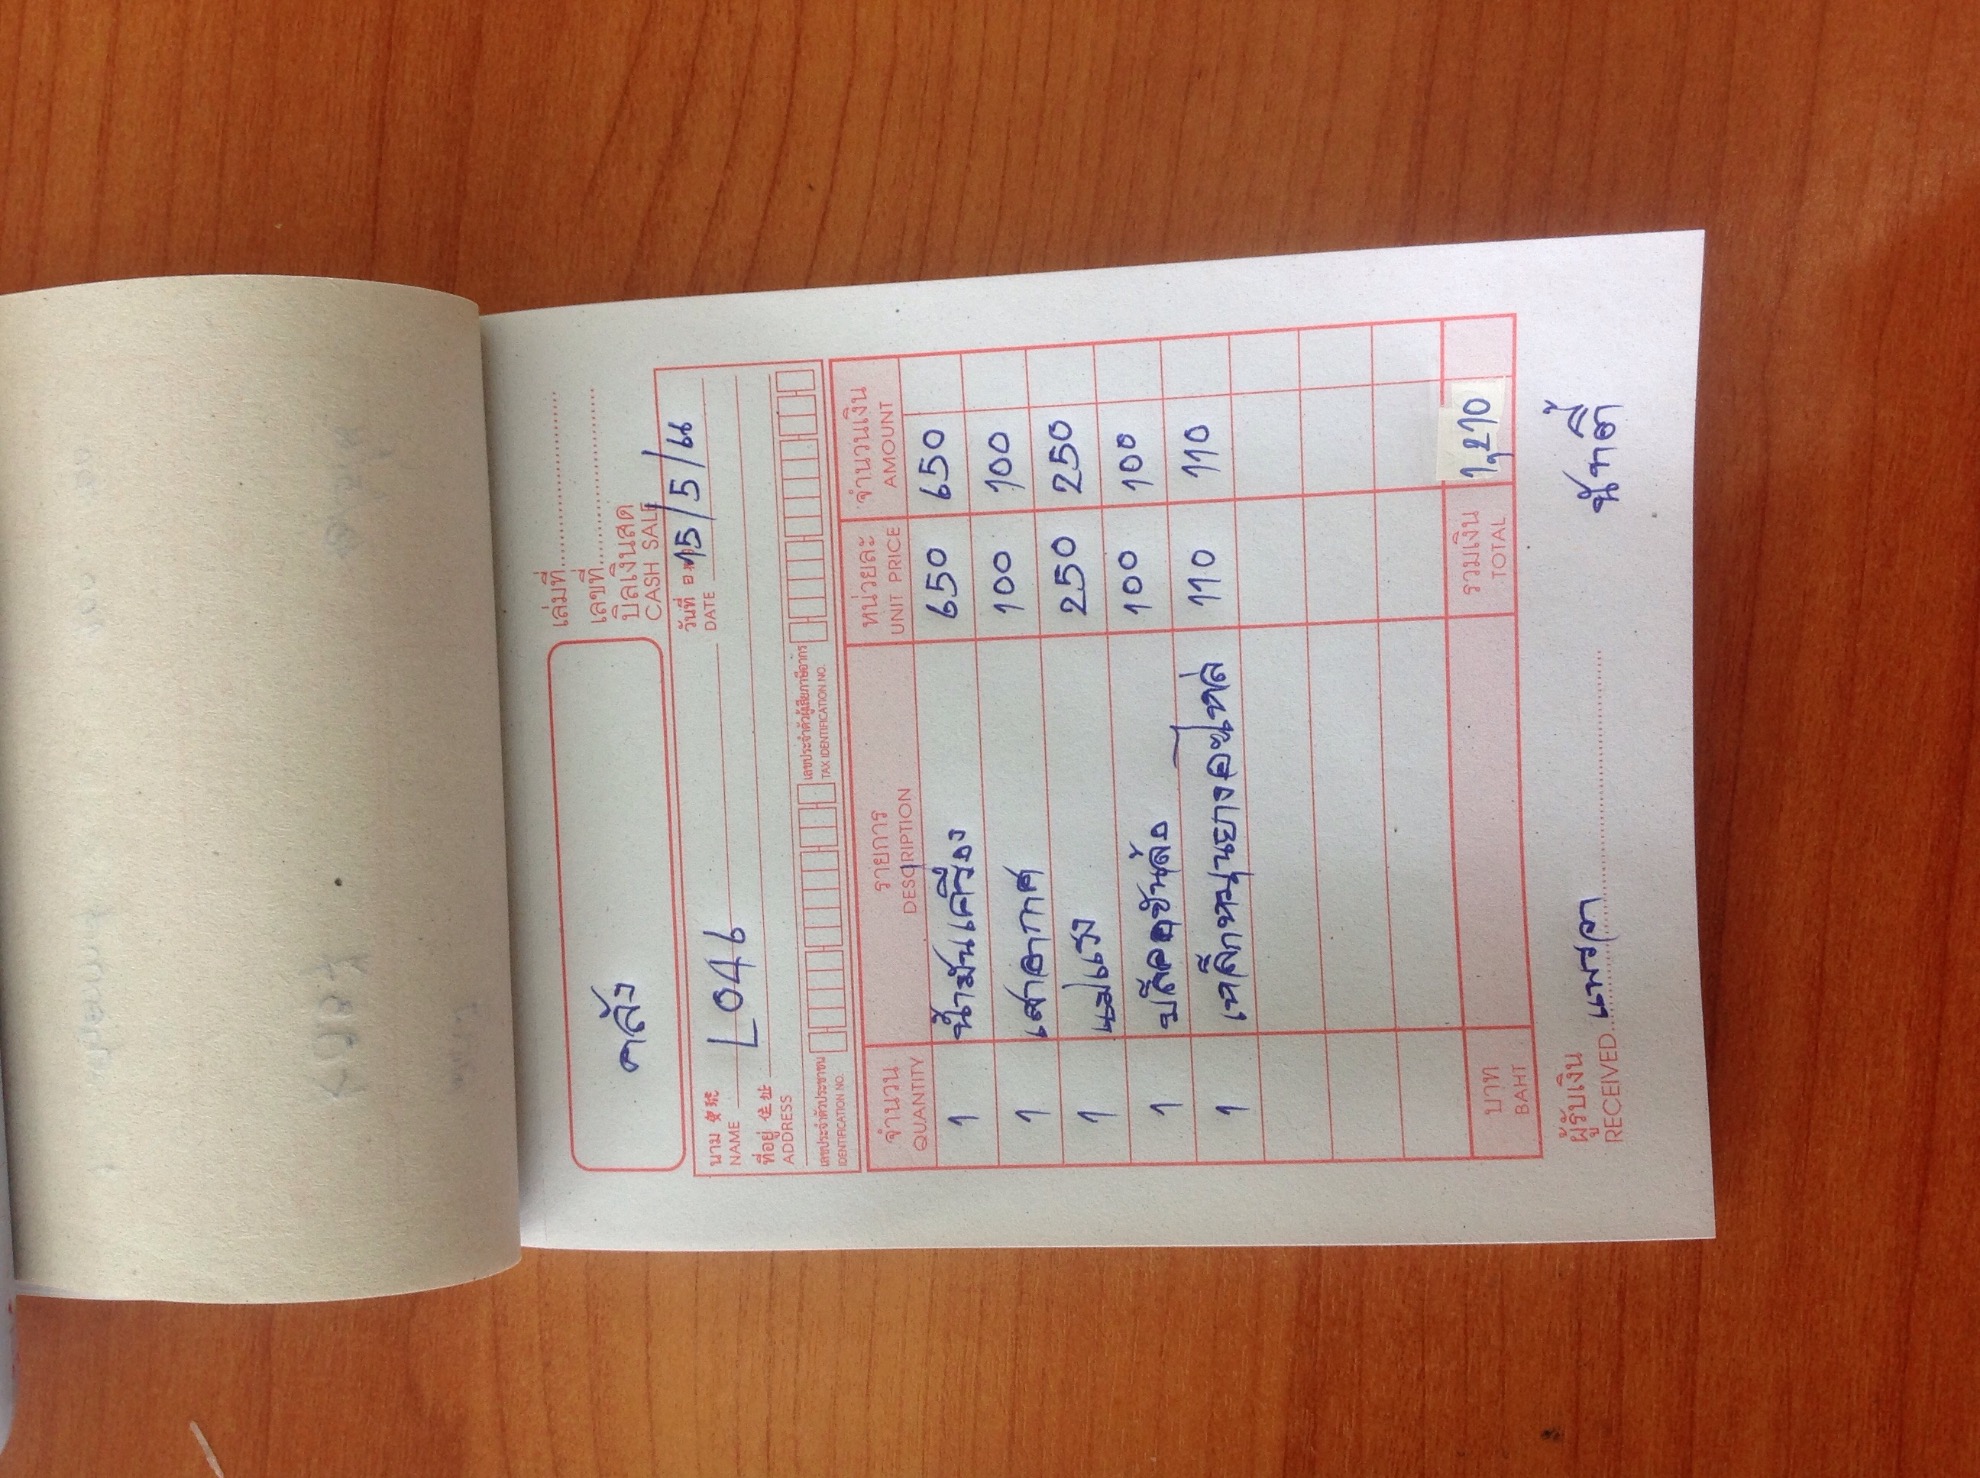 คลัง
เล่มที่
เลขที่
บิลเงินสด
CASH SALE
นาม 寶號 L046 วันที่ 日期 15/5/
NAME DATE
ที่อยู่ 住址
ADDRESS
เลขประจำตัวประชาชน เลขประจำตัวผู้เสียภาษีอากร
IDENTIFICATION NO. TAX IDENTIFICATION NO.
จำนวน รายการ หน่วยละ จำนวนเงิน
QUANTITY DESCRIPTION UNIT PRICE AMOUNT
1 น้ำมันเครื่อง 650 650
1 เสาอากาศ 100 100
1 แม่แรง 250 250
1 บล็อคขันล้อ 100 100
1 เหล็กหมุนยางอะไหล่ 110 110
บาท รวมเงิน 1,210
BAHT TOTAL
ผู้รับเงิน
RECEIVED